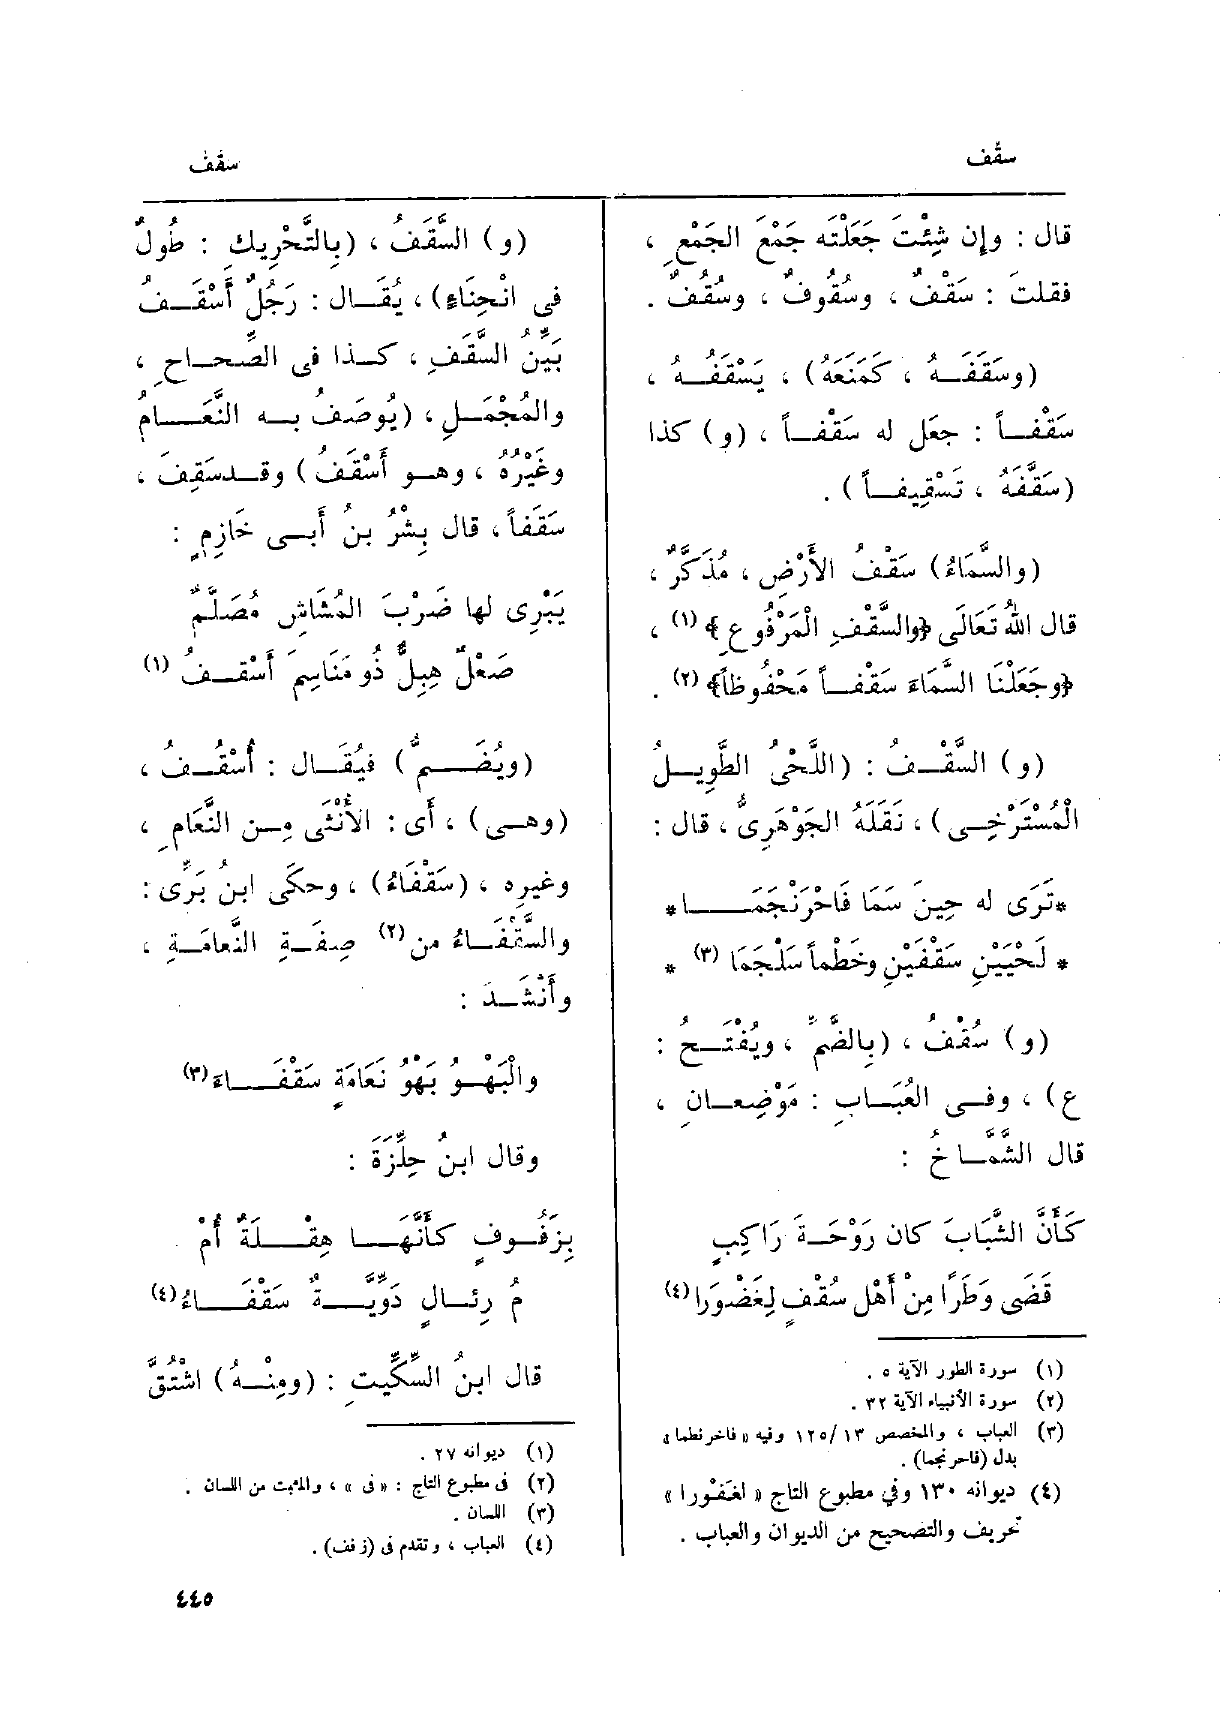 سقف
قال : وإن شِئْتَ جَعَلْتَه جَمْعَ الجَمْعِ ،
فقلتَ : سَقْفٌ ، وسُقُوفٌ ، وسُقُفٌ .
(وسَقَفَـهُ ، كَمَنَعَهُ) ، يَسْقَفُـهُ ،
سَقْفـاً : جعَل له سَقْفـاً ، (و) كذا
(سَقَّفَهُ ، تَسْقِيفـاً) .
(والسَّمَاءُ) سَقْفُ الأَرْضِ ، مُذَكَّرٌ ،
قال اللهُ تَعَالَى ﴿والسَّقْفِ الْمَرْفُوعِ﴾ (١) ،
﴿وجَعَلْنَا السَّمَاءَ سَقْفـاً مَحْفُوظاً﴾ (٢) .
(و) السَّقْـفُ : (اللَّحْىُ الطَّوِيـلُ
الْمُسْتَرْخِـى) ، نَقَلَهُ الجَوْهَرِىُّ ، قال :
*تَرَى له حِينَ سَمَا فَاحْرَنْجَمَـــا*
* لَحْيَيْنِ سَقْفَيْنِ وخَطْماً سَلْجَمَا (٣) *
(و) سُقْفُ ، (بالضَّمِّ ، ويُفْتَـحُ :
ع) ، وفـى العُبَـابِ : مَوْضِعـانِ ،
قال الشَّمَّـاخُ :
كَأَنَّ الشَّبَابَ كان رَوْحَـةَ رَاكِبٍ
قَضَى وَطَرًا مِنْ أَهْلِ سُقْفٍ لِغَضْوَرَا (٤)
(١) سورة الطور الآية ٥ .
(٢) سورة الأنبياء الآية ٣٢ .
(٣) العباب ، والمخصص ١٢٥/١٣ وفيه « فاخرنطما »
بدل (فاحرنجما) .
(٤) ديوانه ١٣٠ وفي مطبوع التاج « لغفورا »
تحريف والتصحيح من الديوان والعباب .
سقف
(و) السَّقَفُ ، (بالتَّحْرِيكِ : طُولٌ
فى انْحِنَاءٍ) ، يُقَـال : رَجُلٌ أَسْقَـفُ
بَيِّنُ السَّقَفِ ، كـذا فى الصِّحـاحِ ،
والمُجْمَـلِ ، (يُوصَفُ بـه النَّعَـامُ
وغَيْرُهُ ، وهـو أَسْقَفُ) وقـد سَقِفَ ،
سَقَفاً ، قال بِشْرُ بنُ أَبـى خَازِمٍ :
يَبْرِى لها ضَرْبَ المُشَاشِ مُصَلَّمٌ
صَعْلٌ هِبِلٌّ ذُو مَنَاسِمَ أَسْقـفُ (١)
(ويُضَــمُّ) فيُقَـال : أُسْقُـفُ ،
(وهـى) ، أى : الأُنْثَى مِـن النَّعَامِ ،
وغيرِه ، (سَقْفَاءُ) ، وحكَى ابنُ بَرِّى :
والسَّقْفَـاءُ من (٢) صِفَـةِ النَّعامَـةِ ،
وأَنْشَـدَ :
والْبَهْـوُ بَهْوُ نَعَامَةٍ سَقْفَـــاءَ (٣)
وقال ابنُ حِلِّزَةَ :
بِزَفُـوفٍ كأَنَّهَــا هِقْــلَةٌ أُمْ
مُ رِئـالٍ دَوِّيَّــةٌ سَقْفَـــاءُ (٤)
قال ابنُ السِّكِّيتِ : (ومِنْـهُ) اشْتُقَّ
(١) ديوانه ٢٧ .
(٢) فى مطبوع التاج : « فى » ، والمثبت من اللسان .
(٣) اللسان .
(٤) العباب ، وتقدم فى (زفف) .
٤٤٥